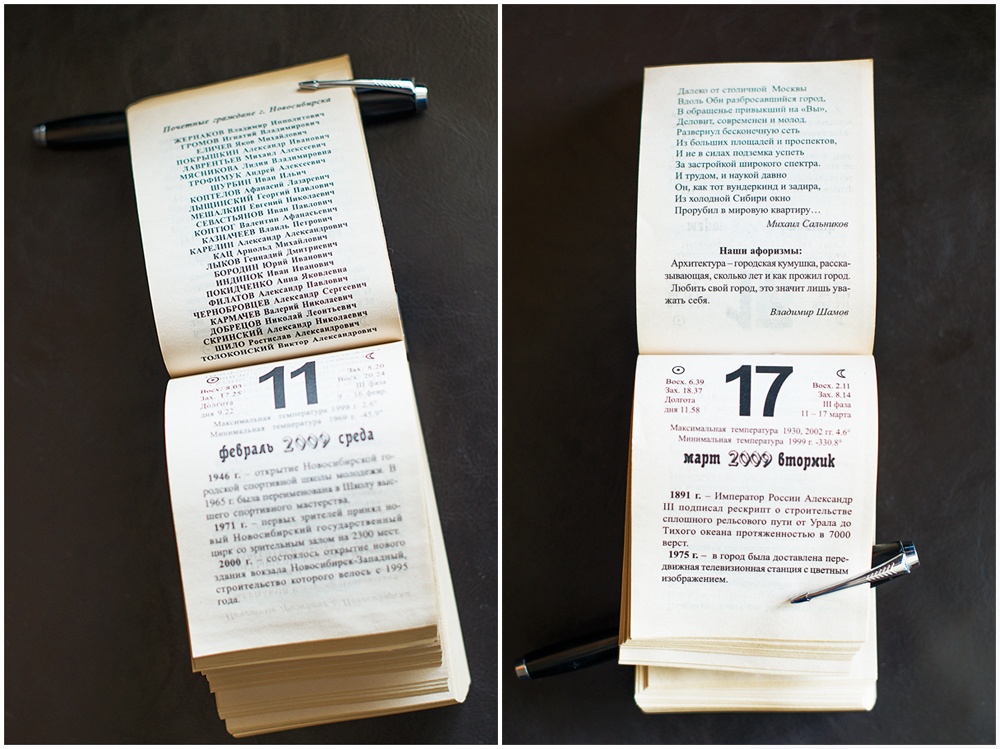 Почетные граждане г. Новосибирска
ЖЕРНАКОВ Владимир Ипполитович
ГРОМОВ Игнатий Владимирович
ЕЛИЧЕВ Яков Михайлович
ПОКРЫШКИН Александр Иванович
ЛАВРЕНТЬЕВ Михаил Алексеевич
МЯСНИКОВА Лидия Владимировна
ТРОФИМУК Андрей Алексеевич
ШУРБИН Иван Ильич
КОПТЕЛОВ Афанасий Лазаревич
ЛЫЩИНСКИЙ Георгий Павлович
МЕШАЛКИН Евгений Николаевич
СЕВАСТЬЯНОВ Иван Павлович
КОПТЮГ Валентин Афанасьевич
КАЗНАЧЕЕВ Влаиль Петрович
КАРЕЛИН Александр Александрович
КАЦ Арнольд Михайлович
ЛЫКОВ Геннадий Дмитриевич
БОРОДИН Юрий Иванович
ИНДИНОК Иван Иванович
ПОКИДЧЕНКО Анна Яковлевна
ФИЛАТОВ Александр Павлович
ЧЕРНОБРОВЦЕВ Александр Сергеевич
КАРМАЧЕВ Валерий Николаевич
ДОБРЕЦОВ Николай Леонтьевич
СКРИНСКИЙ Александр Николаевич
ШИЛО Ростислав Александрович
ТОЛОКОНСКИЙ Виктор Александрович
Восх. 8.03
Зах. 17.25
Долгота
дня 9.22
11
Зах. 8.20
Восх. 20.24
III фаза
9 – 16 февр.
Максимальная температура 1999 г. 2.6°
Минимальная температура 1969 г. -45.9°
февраль 2009 среда
1946 г. – открытие Новосибирской го-
родской спортивной школы молодежи. В
1965 г. была переименована в Школу выс-
шего спортивного мастерства.
1971 г. – первых зрителей принял но-
вый Новосибирский государственный
цирк со зрительным залом на 2300 мест.
2000 г. – состоялось открытие нового
здания вокзала Новосибирск-Западный,
строительство которого велось с 1995
года.
Далеко от столичной Москвы
Вдоль Оби разбросавшийся город,
В обращенье привыкший на «Вы»,
Деловит, современен и молод.
Развернул бесконечную сеть
Из больших площадей и проспектов,
И не в силах подземка успеть
За застройкой широкого спектра.
И трудом, и наукой давно
Он, как тот вундеркинд и задира,
Из холодной Сибири окно
Прорубил в мировую квартиру…
Михаил Сальников
Наши афоризмы:
Архитектура – городская кумушка, расска-
зывающая, сколько лет и как прожил город.
Любить свой город, это значит лишь ува-
жать себя.
Владимир Шамов
Восх. 6.39
Зах. 18.37
Долгота
дня 11.58
17
Восх. 2.11
Зах. 8.14
III фаза
11 – 17 марта
Максимальная температура 1930, 2002 гг. 4.6°
Минимальная температура 1999 г. -330.8°
март 2009 вторник
1891 г. – Император России Александр
III подписал рескрипт о строительстве
сплошного рельсового пути от Урала до
Тихого океана протяженностью в 7000
верст.
1975 г. – в город была доставлена пере-
движная телевизионная станция с цветным
изображением.